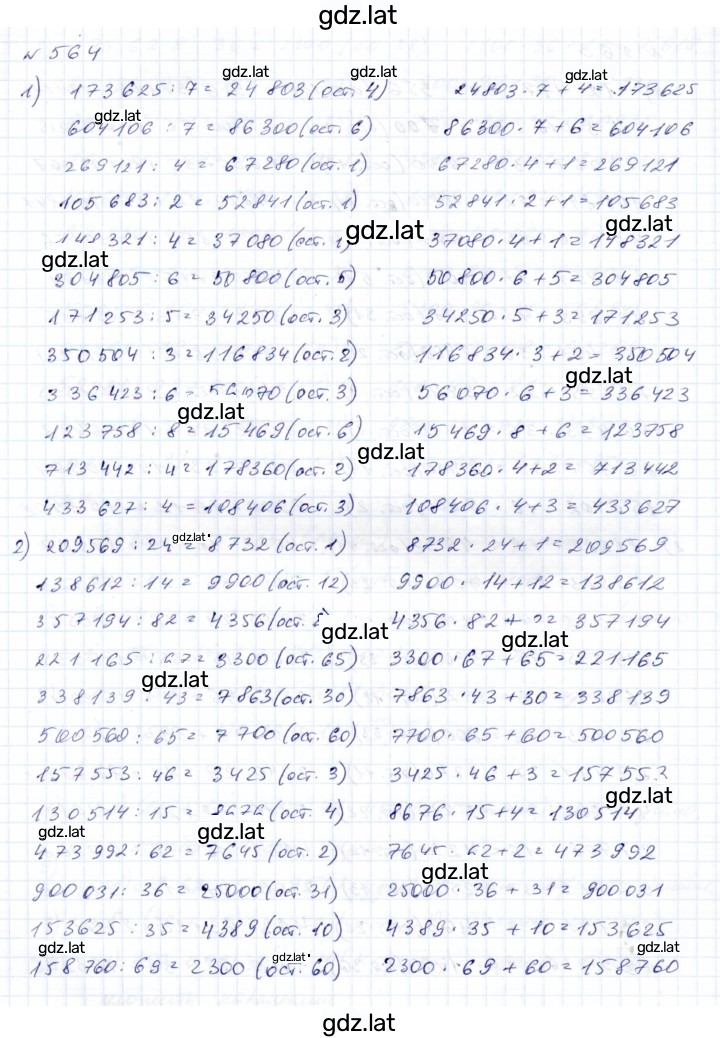 gdz.lat
№ 564
gdz.lat gdz.lat gdz.lat
1) 173625 : 7 = 24803 (ост. 4) 24803 · 7 + 4 = 173625
gdz.lat
604106 : 7 = 86300 (ост. 6) 86300 · 7 + 6 = 604106
269121 : 4 = 67280 (ост. 1) 67280 · 4 + 1 = 269121
105683 : 2 = 52841 (ост. 1) 52841 · 2 + 1 = 105683
gdz.lat gdz.lat
148321 : 4 = 37080 (ост. 1) 37080 · 4 + 1 = 148321
gdz.lat
304805 : 6 = 50800 (ост. 5) 50800 · 6 + 5 = 304805
171253 : 5 = 34250 (ост. 3) 34250 · 5 + 3 = 171253
350504 : 3 = 116834 (ост. 2) 116834 · 3 + 2 = 350504
gdz.lat
336423 : 6 = 56070 (ост. 3) 56070 · 6 + 3 = 336423
gdz.lat
123758 : 8 = 15469 (ост. 6) 15469 · 8 + 6 = 123758
gdz.lat
713442 : 4 = 178360 (ост. 2) 178360 · 4 + 2 = 713442
433627 : 4 = 108406 (ост. 3) 108406 · 4 + 3 = 433627
gdz.lat
2) 209569 : 24 = 8732 (ост. 1) 8732 · 24 + 1 = 209569
138612 : 14 = 9900 (ост. 12) 9900 · 14 + 12 = 138612
357194 : 82 = 4356 (ост. 4356 · 82 + 2 = 357194
gdz.lat gdz.lat
221165 : 67 = 3300 (ост. 65) 3300 · 67 + 65 = 221165
gdz.lat
338139 : 43 = 7863 (ост. 30) 7863 · 43 + 30 = 338139
500560 : 65 = 7700 (ост. 60) 7700 · 65 + 60 = 500560
157553 : 46 = 3425 (ост. 3) 3425 · 46 + 3 = 157553
gdz.lat
130514 : 15 = 8676 (ост. 4) 8676 · 15 + 4 = 130514
gdz.lat gdz.lat
473992 : 62 = 7645 (ост. 2) 7645 · 62 + 2 = 473992
gdz.lat
900031 : 36 = 25000 (ост. 31) 25000 · 36 + 31 = 900031
153625 : 35 = 4389 (ост. 10) 4389 · 35 + 10 = 153625
gdz.lat gdz.lat gdz.lat
158760 : 69 = 2300 (ост. 60) 2300 · 69 + 60 = 158760
gdz.lat